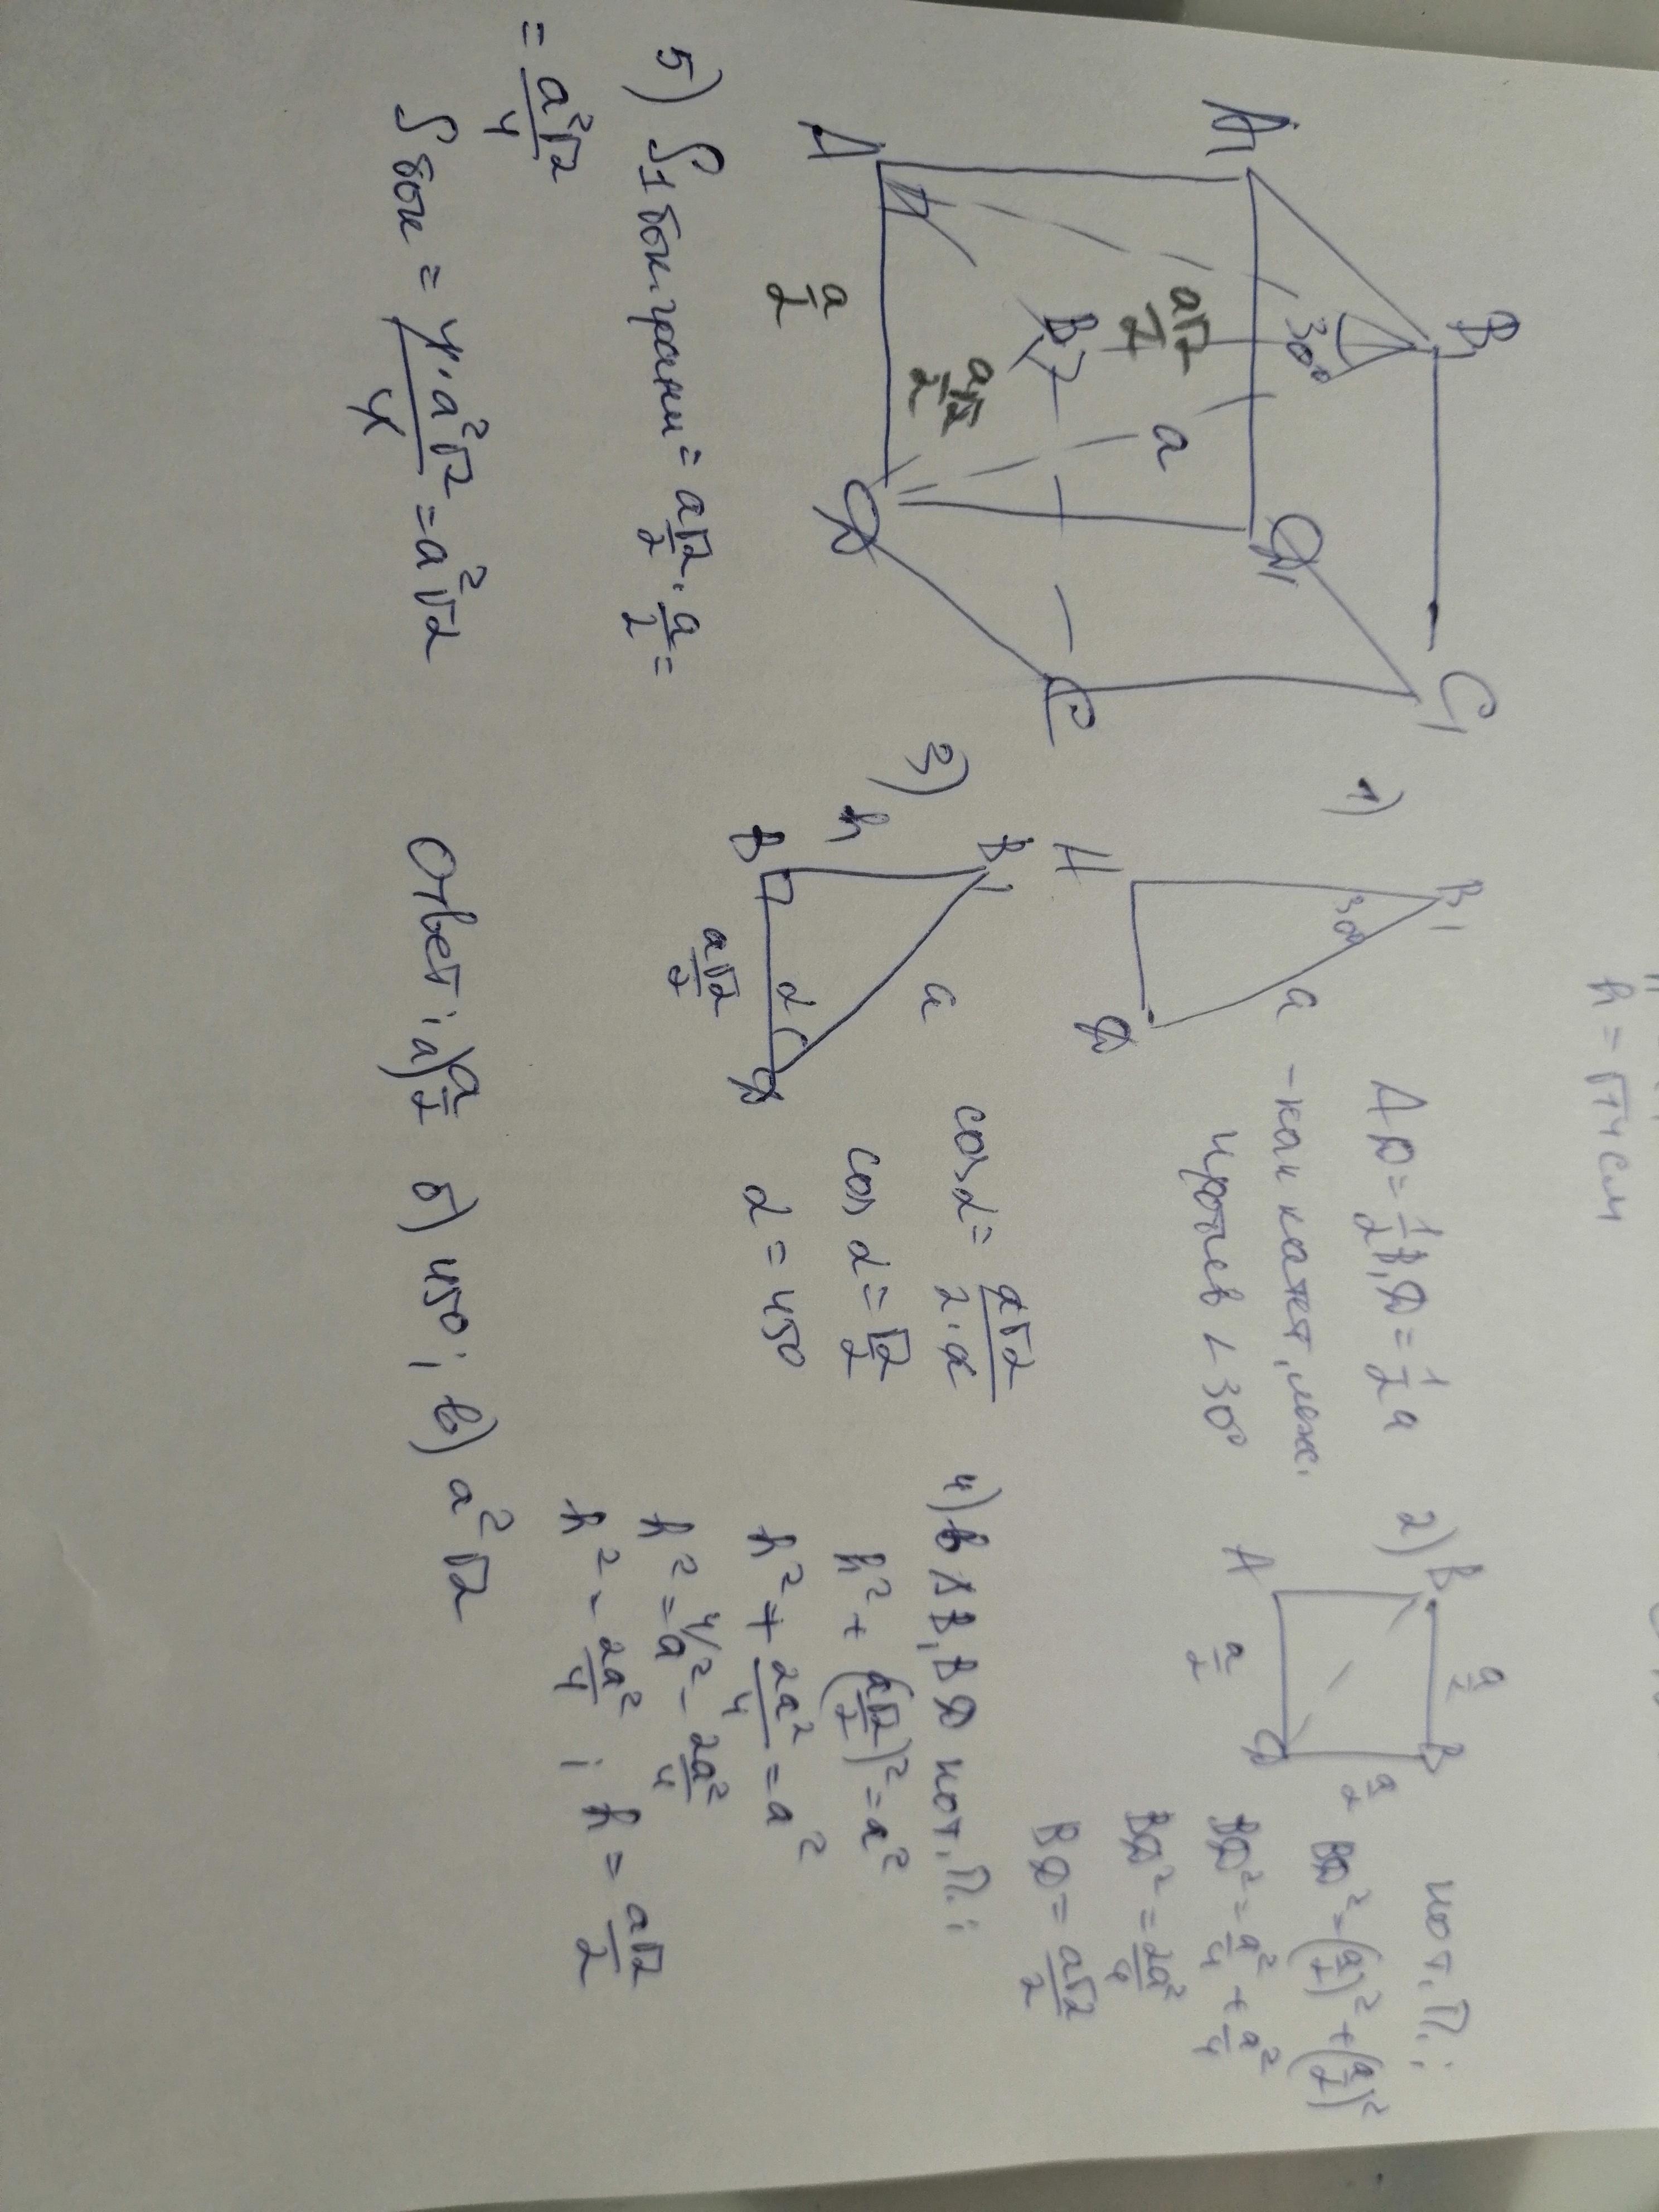 h = √74 см
A₁
B₁
C₁
D₁
A
B
C
D
30°
a
a√2/2
a√2/2
a/2
1)
B₁
30°
a
D
AD = 1/2 B₁D = 1/2 a
- как катет, леж.
против ∠ 30°
2)
B
A
D
a/2
a/2
a/2
по т. П.:
BD² = (a/2)² + (a/2)²
BD² = a²/4 + a²/4
BD² = 2a²/4
BD = a√2/2
3)
B₁
h
a
B
α
D
a√2/2
cos α = a√2/2·a
cos α = √2/2
α = 45°
4) в ΔB₁BD по т. П.:
h² + (a√2/2)² = a²
h² + 2a²/4 = a²
h² = 4/a² - 2a²/4
h² = 2a²/4 ; h = a√2/2
5) S 1 бок. грани = a√2/2 · a/2 =
= a²√2/4
S бок = 4·a²√2/4 = a²√2
Ответ: а) a/2 б) 45°; в) a²√2